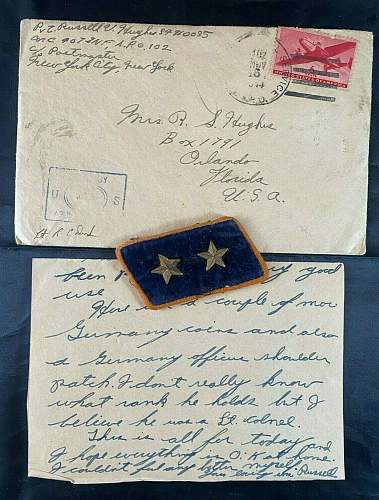 Russell V. Hughes
Co. C 407 INF, A.P.O. 102
c/o Postmaster
New York City, New York
Mrs. R. S. Hughes
Box 1791
Orlando
Florida
U.S.A.
U S
been good
use.
Here a couple of mor
Germany coins and also
a Germany officer shoulder
patch. I don't really know
what rank he holds but I
believe he was a Lt. colonel.
This is all for today and
I hope everything is O.K. at home.
I couldn't feel any better myself.
Russell